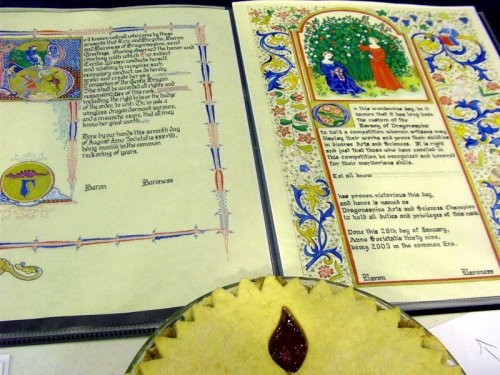 it known unto all who come by these
presents that Eric and Baron
and Baroness of Dragonsspine, send
Greetings. Having observed the honor and
courtesy with which Our subject
conducts herself
and wishing to recognize such
exemplary conduct, we do hereby
grant and create her as a
Companion of the Gentle Dragon.
She shall be accorded all rights and
responsibilities of this rank,
including the right to bear the badge
of the order, to wit: a
wingless dragon dormant
and a azure, that all may
know her great worth.
Done by our hands this seventh day
of August Anno Societatis xxxviii,
being in the common
reckoning of years.
Baron Baroness
On this wondrous day, be it
known that it has long been
the custom of the
Barony of Dragonsspine
to hold a competition wherein artisans may
display their works and prove their skills
in diverse Arts and Sciences. It is right
and just that those who have excelled in
this competition be recognized and honored
for their meritorious skills.
Let all know
has proven victorious this day,
and hence is named as
Dragonsspine Arts and Sciences Champion,
to hold all duties and privileges of this rank.
Done this 29th day of January,
Anno Societatis thirty nine,
being 2005 in the common Era.
Baron Baroness